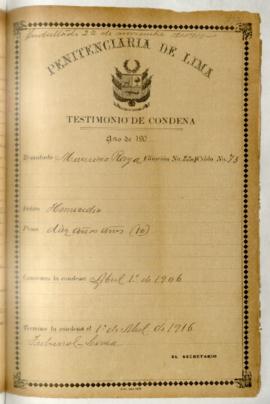 Indultado 22 de noviembre de
PENITENCIARIA DE LIMA
TESTIMONIO DE CONDENA
Año de 190
Rematado Mauricio Raza Filiación No. Celda No. 75
Delito Homicidio
Pena diez años (10)
Comienza la condena Abril 1º de 1906
Termina la condena el 1º de Abril de 1916
Tribunal Lima
EL SECRETARIO